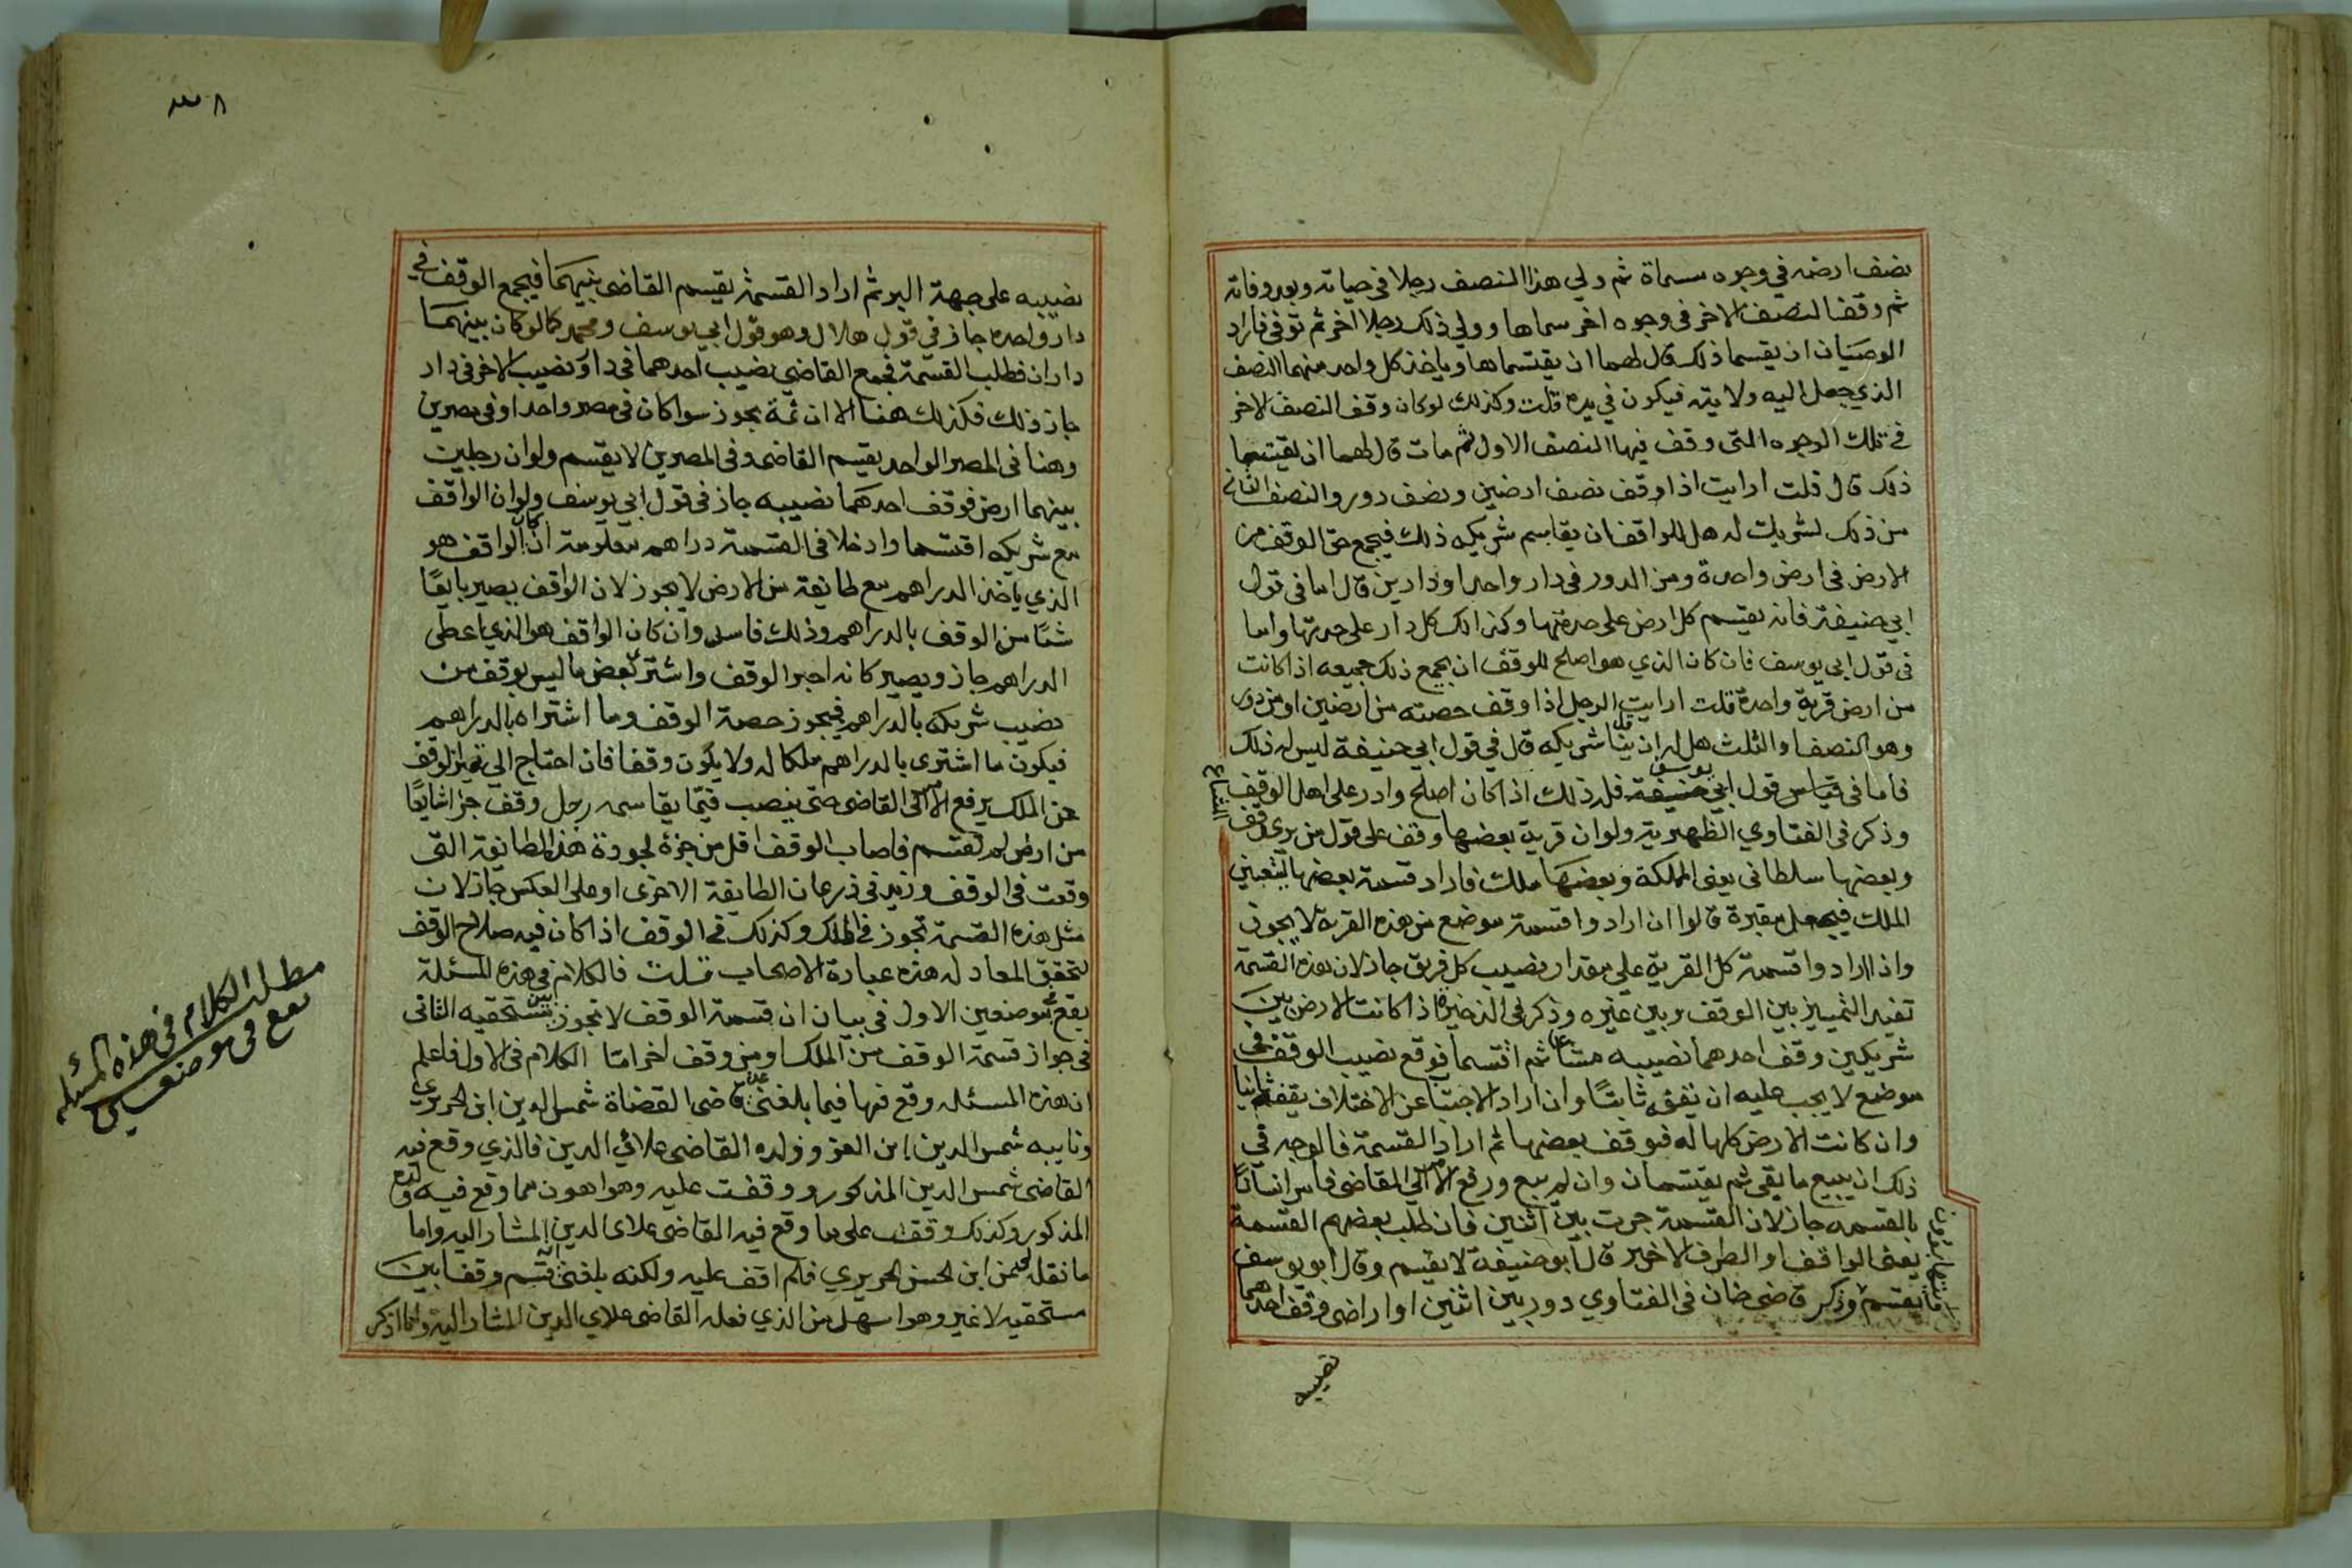 نصف ارضه في وجوه مسماة ثم ولي هذا النصف رجلا في حياته وبعد وفاته
ثم وقف النصف الاخر في وجوه اخر سماها وولي ذلك رجلا اخر ثم توفي فاراد
الوصيان ان يقسما ذلك قال لهما ان يقتسماها وياخذ كل واحد منهما النصف
الذي جعل اليه ولايته فيكون في يده قلت وكذلك لو كان وقف النصف الاخر
في تلك الوجوه التي وقف فيها النصف الاول ثم مات قال لهما ان يقتسما
ذلك قال قلت ارايت اذا وقف نصف ارضين ونصف دور والنصف الثاني
من ذلك لشريك له هل للواقف ان يقاسم شريكه ذلك فيجمع حق الوقف من
الارض في ارض واحدة ومن الدور في دار واحد او دارين قال اما في قول
ابي حنيفة فانه يقسم كل ارض على حدتها وكذلك كل دار على حدتها واما
في قول ابي يوسف فان كان الذي هو اصلح للوقف ان يجمع ذلك جميعه اذا كانت
من ارض قرية واحدة قلت ارايت الرجل اذا وقف حصته من ارضين او من دور
وهو النصف او الثلث هل له ان يناقل شريكه قال في قول ابي حنيفة ليس له ذلك
فاما في قياس قول ابي يوسف فله ذلك اذا كان اصلح وادر على اهل الوقف
وذكر في الفتاوي الظهيرية ولو ان قرية بعضها وقف على قول من يري وقف
المشاع
وبعضها سلطاني يعني المملكة وبعضها ملك فاراد قسمة بعضها ليتعين
الملك فيجعل مقبرة قالوا ان ارادوا قسمة موضع من هذه القرية لا يجوز
واذا ارادوا قسمة كل القرية على مقدار نصيب كل فريق جاز لان بهذه القسمة
تفيد التمييز بين الوقف وبين غيره وذكر في الذخيرة اذا كانت الارض بين
شريكين وقف احدهما نصيبه مشاعا ثم اقتسما فوقع نصيب الوقف في
موضع لا يجب عليه ان يقفه ثانيا وان اراد الاجتناب عن الاختلاف يقفه ثانيا
وان كانت الارض كلها له فوقف بعضها ثم اراد القسمة فالوجه في
ذلك ان يبيع ما بقي ثم يقتسمان وان لم يبع ورفع الامر الي القاضي فامر انسانا
بالقسمه جاز لان القسمة جرت بين اثنين فان طلب بعضهم القسمة
يعني الواقف او الطرف الاخير قال ابو حنيفة لا يقسم وقال ابو يوسف
يقسم وذكر قاضي خان في الفتاوي دور بين اثنين او اراضي وقف احدهما
نصيبه
نصيبه على جهة البر ثم اراد القسمة يقسم القاضي بينهما فيجمع الوقف في
دار واحده جاز في قول هلال وهو قول ابي يوسف ومحمد كما لو كان بينهما
داران فطلب القسمة فجمع القاضي نصيب احدهما في دار ونصيب الاخر في دار
جاز ذلك فكذلك هنا الا ان ثمة يجوز سوا كان في مصر واحد او في مصرين
وهنا في المصر الواحد يقسم القاضي وفي المصرين لا يقسم ولو ان رجلين
بينهما ارض فوقف احدهما نصيبه جاز في قول ابي يوسف ولو ان الواقف
مع شريكه اقتسما وادخلا في القسمة دراهم معلومة ان كان الواقف هو
الذي ياخذ الدراهم مع طايفة من الارض لا يجوز لان الواقف يصير بايعا
شئا من الوقف بالدراهم وذلك فاسد وان كان الواقف هو الذي اعطى
الدراهم جاز ويصير كانه اخبر الوقف واشترى بعض ما ليس بوقف من
نصيب شريكه بالدراهم فيجوز حصة الوقف وما اشتراه بالدراهم
فيكون ما اشترى بالدراهم ملكا له ولا يكون وقفا فان احتاج الي تمييز الوقف
عن الملك يرفع الامر الي القاضي حتى ينصب قيما يقاسمه رجل وقف جزا شايعا
من ارض لم تقسم فاصاب الوقف اقل من جزئه لجودة هذه الطايفة التي
وقعت في الوقف وزيد في ذرعان الطايفة الاخرى او على العكس جاز لان
مثل هذه القسمة تجوز في الملك وكذلك في الوقف اذا كان فيه صلاح الوقف
لتحقق المعادله هذه عبارة الاصحاب قلت فالكلام في هذه المسئلة
يقع في موضعين الاول في بيان ان قسمة الوقف لا تجوز بين مستحقيه الثاني
في جواز قسمة الوقف من الملك او من وقف اخر اما الكلام في الاول فاعلم
ان هذه المسئله وقع فيها فيما بلغني عن قاضي القضاة شمس الدين ابن الحريري
ونايبه شمس الدين ابن العز وولده القاضي علائي الدين فالذي وقع فيه
القاضي شمس الدين المذكور ووقفت عليه وهو اهون مما وقع فيه ولده
المذكور وكذلك وقفت على ما وقع فيه القاضي علاي الدين المشار اليه واما
ما نقله عن ابن الحريري فلم اقف عليه ولكنه بلغني انه قسم وقفا بين
مستحقيه لا غير وهو اسهل من الذي فعله القاضي علاي الدين المشار اليه وانما اذكر
مطلب الكلام في هذه المسئله
يقع في موضعين